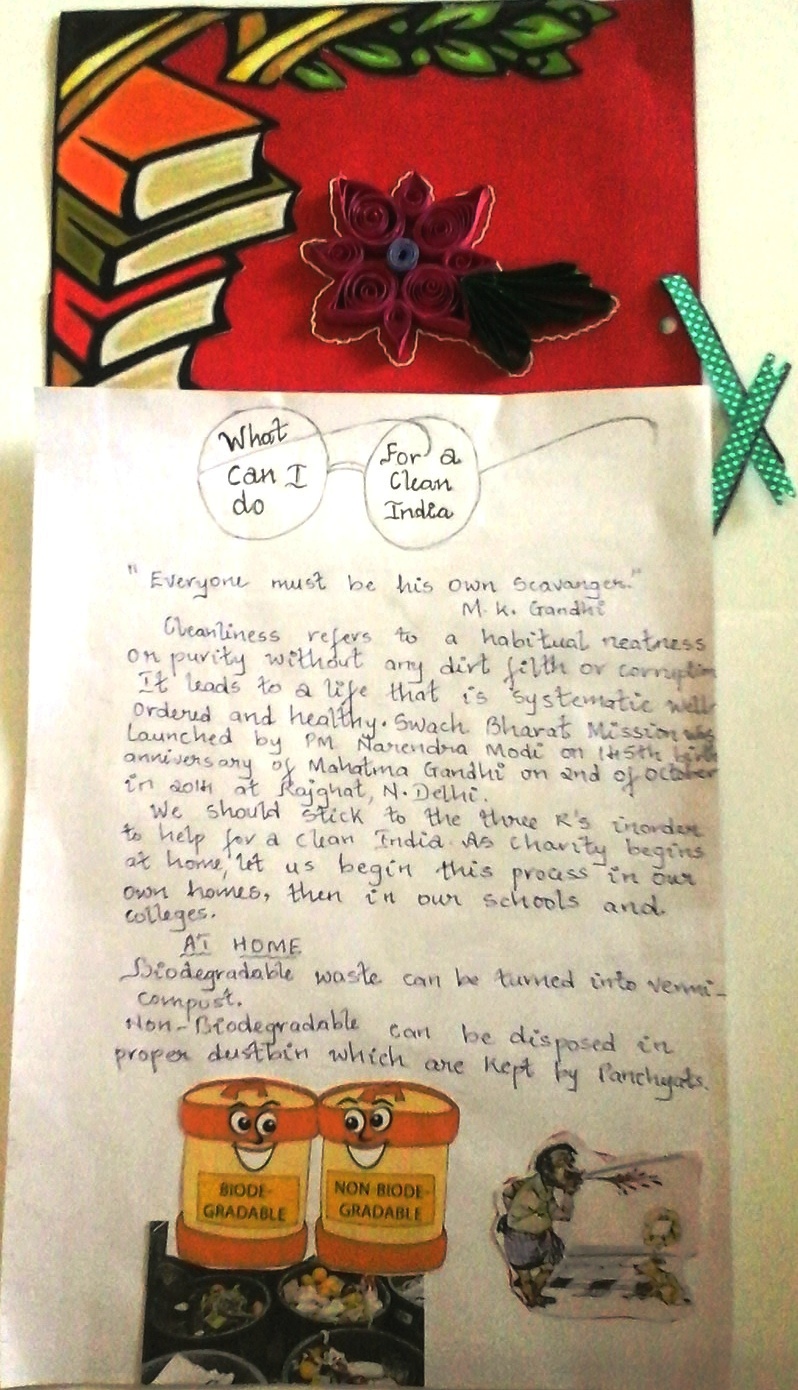 What
Can I
do
For a
Clean
India
"Everyone must be his own Scavanger."
M. K. Gandhi
Cleanliness refers to a habitual neatness
or purity without any dirt filth or corruption
It leads to a life that is systematic well
ordered and healthy. Swach Bharat Mission was
launched by PM Narendra Modi on 145th birth
anniversary of Mahatma Gandhi on 2nd of October
in 2014 at Rajghat, N. Delhi.
We should stick to the three R's inorder
to help for a clean India. As charity begins
at home, let us begin this process in our
own homes, then in our schools and
colleges.
AT HOME
Biodegradable waste can be turned into vermi-
compost.
Non-Biodegradable can be disposed in
proper dustbin which are kept by Panchyats.
BIODE-
GRADABLE
NON-BIODE-
GRADABLE